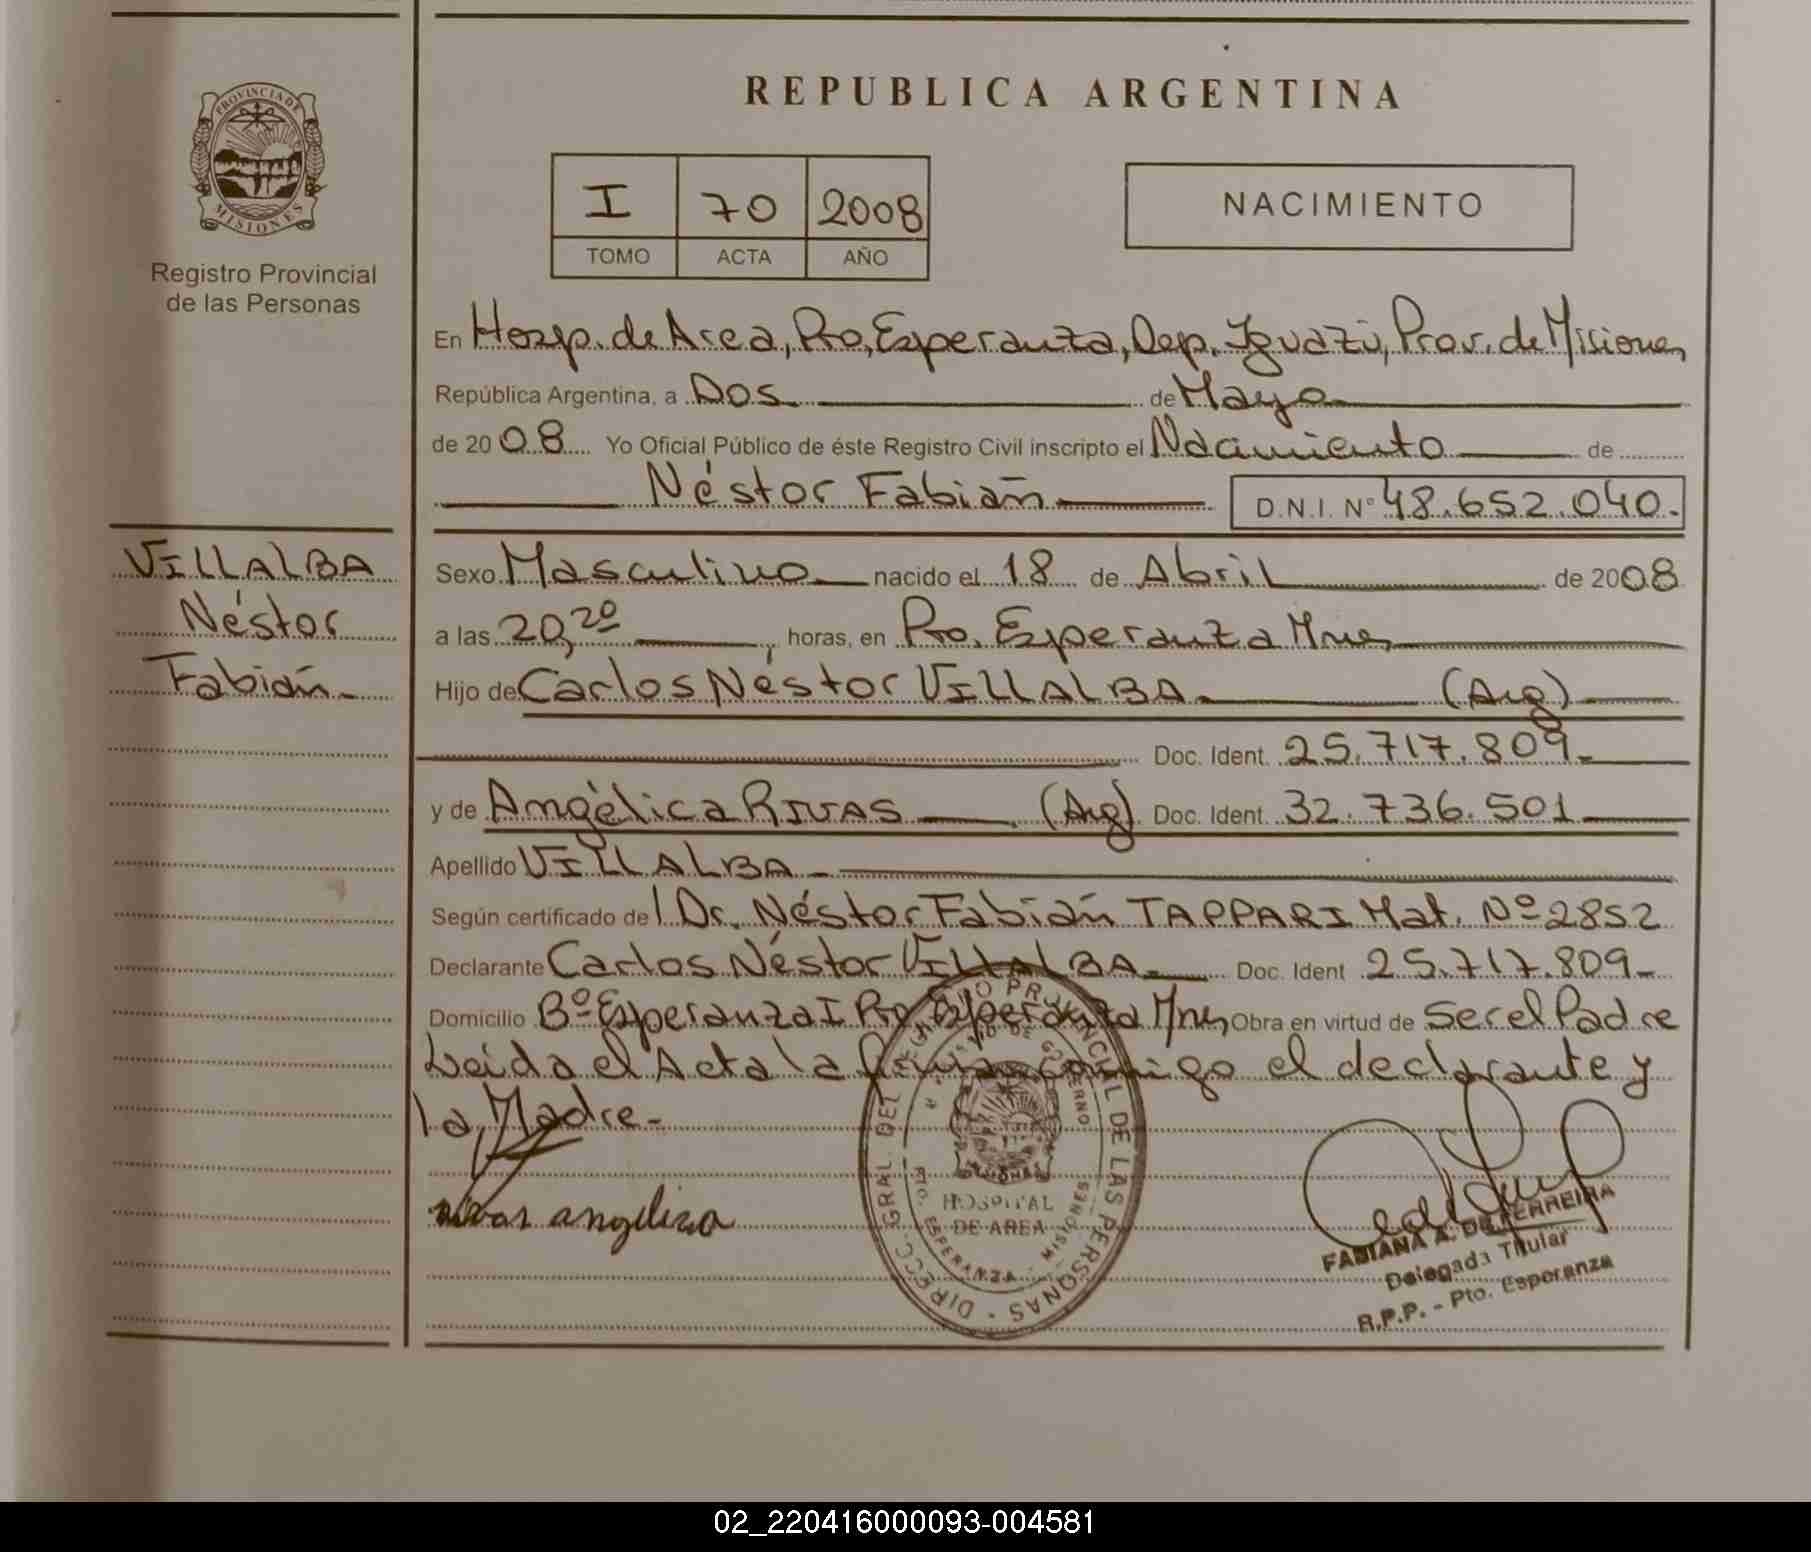 REPUBLICA ARGENTINA
PROVINCIA DE
MISIONES
Registro Provincial
de las Personas
I 70 2008
TOMO ACTA AÑO
NACIMIENTO
En Hosp. de Area, Pto, Esperanza, Dep. Iguazú, Prov. de Misiones
República Argentina, a Dos de Mayo
de 2008 Yo Oficial Público de éste Registro Civil inscripto el Nacimiento de
Néstor Fabián D.N.I. Nº 48.652.040.
VILLALBA
Néstor
Fabián
Sexo Masculino nacido el 18 de Abril de 2008
a las 20,20 horas, en Pto. Esperanza Mnes
Hijo de Carlos Néstor VILLALBA (Arg)
Doc. Ident. 25.717.809
y de Angélica RIVAS (Arg) Doc. Ident. 32.736.501
Apellido VILLALBA
Según certificado del Dr. Néstor Fabián TAPPARI Mat. Nº 2852
Declarante Carlos Néstor VILLALBA Doc. Ident 25.717.809
Domicilio Bº Esperanza I Pto Esperanza Mnes Obra en virtud de Ser el Padre
Leida el Acta la firman conmigo el declarante y
la Madre
rivas angelica
DIRECC. GRAL. DEL REGISTRO PROVINCIAL DE LAS PERSONAS
MISIONES
HOSPITAL
DE AREA
PTO. ESPERANZA - MISIONES
FABIANA A. DE FERREIRA
Delegada Titular
R.P.P. - Pto. Esperanza
02_220416000093-004581